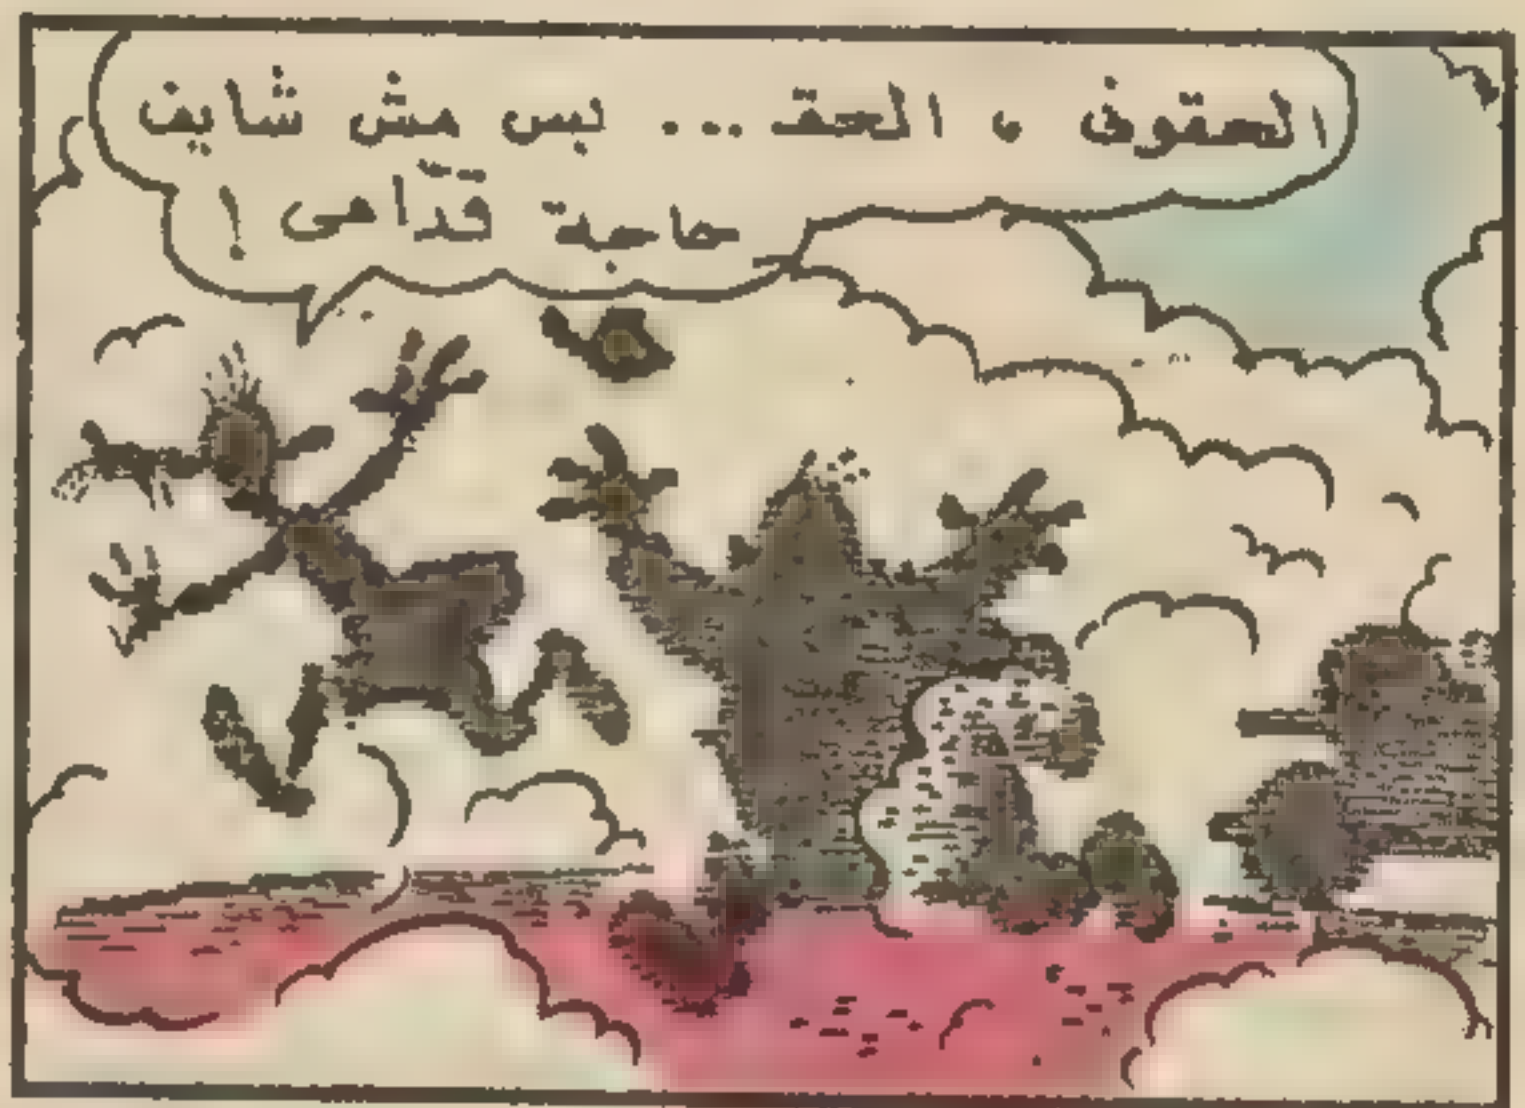 الحقوف ، الحقـ ... بس مش شايف
حاجة قدّامى !